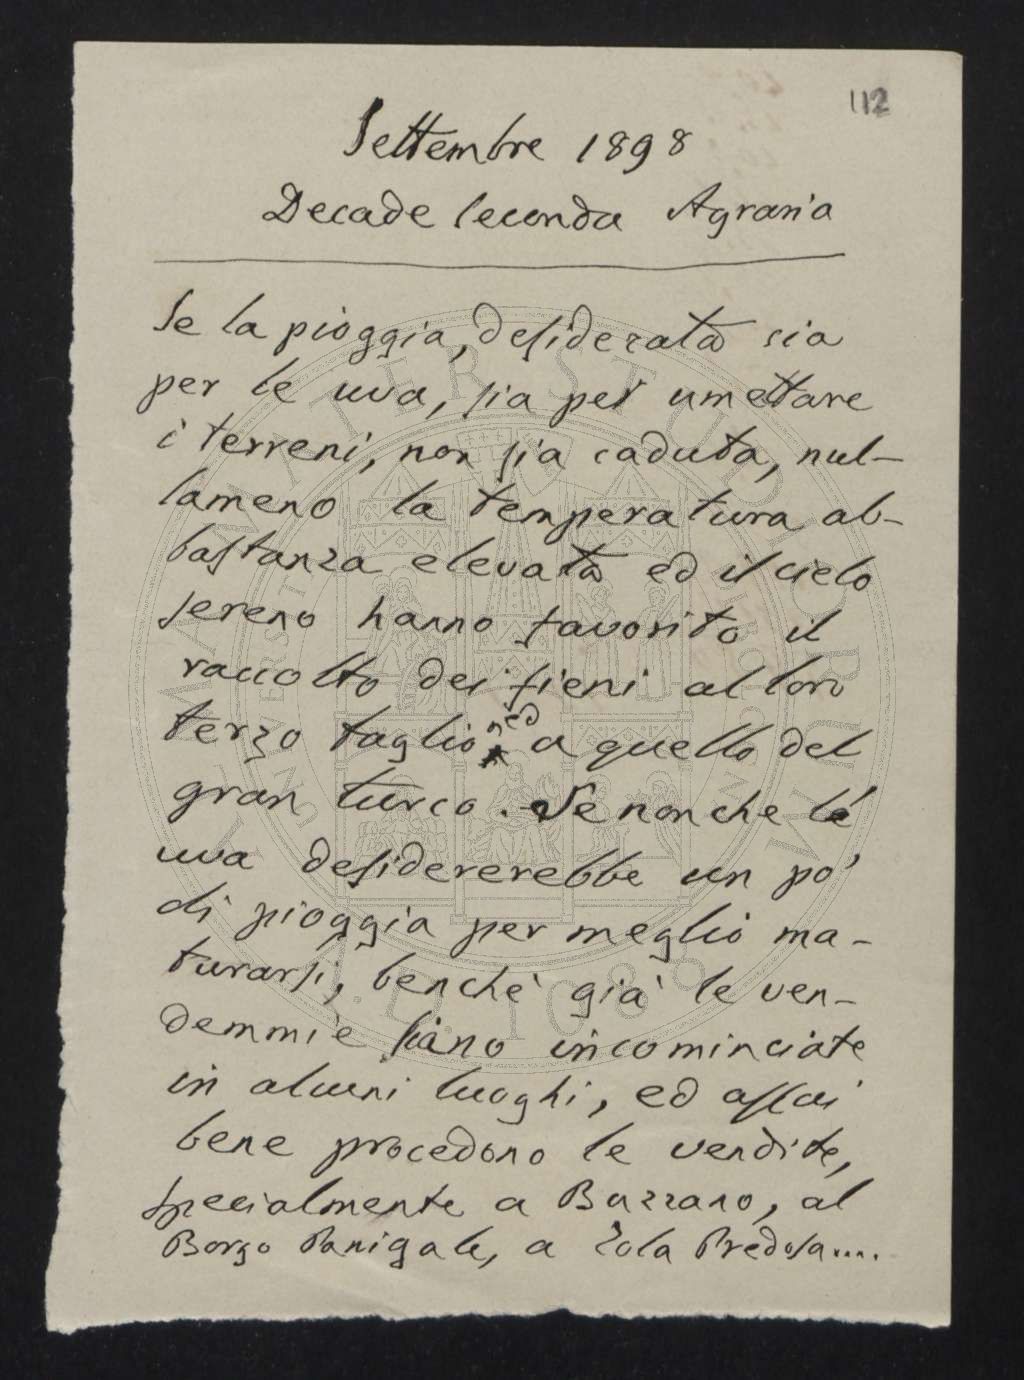 112
Settembre 1898
Decade seconda Agraria
Se la pioggia, desiderata sia
per le uva, sia per umettare
i terreni, non sia caduta, nul-
lameno la temperatura ab-
bastanza elevata ed il cielo
sereno hanno favorito il
raccolto dei fieni al loro
terzo taglio, ed a quello del
gran turco. Se non che le
uva desidererebbe un po'
di pioggia per meglio ma-
turarsi, benchè già le ven-
demmie siano incominciate
in alcuni luoghi, ed assai
bene procedono le vendite,
specialmente a Bazzano, al
Borgo Panigale, a Zola Predosa....
ALMA MATER STUDIORUM
A.D. 1088